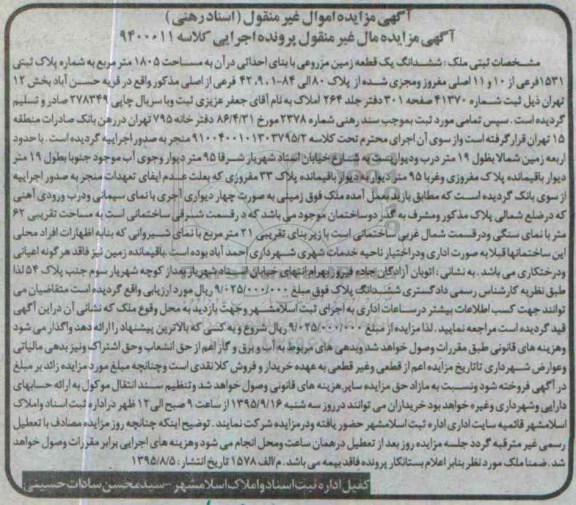 آگهی مزایده اموال غیر منقول (اسناد رهنی)
آگهی مزایده مال غیر منقول پرونده اجرایی کلاسه ۹۴۰۰۰۱۱
مشخصات ثبتی ملک: ششدانگ یک قطعه زمین مزروعی با بنای احداثی در آن به مساحت ۱۸۰۵ متر مربع به شماره پلاک ثبتی
۱۵۳۱ فرعی از ۱۰ و ۱۱ اصلی مفروز و مجزی شده از پلاک ۸۰ الی ۸۴-۴۲،۹۱ فرعی از اصلی مذکور واقع در قریه حسن آباد بخش ۱۲
تهران ذیل ثبت شماره ۴۱۳۷۰ صفحه ۳۰۱ دفتر جلد ۲۶۴ املاک به نام آقای جعفر عزیزی ثبت و با سریال چاپی ۲۷۸۳۴۹ صادر و تسلیم
گردیده است. سپس تمامی مورد ثبت بموجب سند رهنی شماره ۲۳۷۸ مورخ ۸۶/۴/۳۱ دفتر خانه ۷۹۵ تهران در رهن بانک صادرات منطقه
۱۵ تهران قرار گرفته است و از سوی آن اجرای محترم تحت کلاسه ۹۱۰۰۴۰۰۱۰۱۳۰۳۷۹۵/۲ منجر به صدور اجراییه گردیده است. با حدود
اربعه زمین شمالا بطول ۱۹ متر درب و دیواریست به شارع خیابان استاد شهریار شرقا ۹۵ متر دیوار و جوی آب موجود جنوبا بطول ۱۹ متر
دیوار باقیمانده پلاک مفروزی و غربا ۹۵ متر دیوار به دیوار باقیمانده پلاک ۳۳ مفروزی که بعلت عدم ایفای تعهدات منجر به صدور اجراییه
از سوی بانک گردیده است که مطابق بازدید بعمل آمده ملک فوق زمینی به صورت چهار دیواری آجری با نمای سیمانی و درب ورودی آهنی
که در ضلع شمالی پلاک مذکور و مشرف به گذر دو ساختمان موجود می باشد که در قسمت شرقی ساختمانی است به مساحت تقریبی ۶۲
متر با نمای سنگی و در قسمت شمال غربی ساختمانی است با زیر بنای تقریبی ۲۱ متر مربع با نمای شیروانی که بنابه اظهارات افراد محلی
این ساختمانها قبلا به صورت اداری و در اختیار ناحیه خدمات شهری شهرداری احمد آباد بوده است. باقیمانده زمین نیز فاقد هر گونه اعیانی
و درختکاری می باشد. به نشانی: اتوبان آزادگان جاده فیروز بهرام انتهای خیابان استاد شهریار بعد از کوچه شهریار سوم جنب پلاک ۵۴ لذا
طبق نظریه کارشناس رسمی دادگستری ششدانگ پلاک فوق مبلغ ۹/۰۲۵/۰۰۰/۰۰۰ ریال مورد ارزیابی واقع گردیده است متقاضیان می
توانند جهت کسب اطلاعات بیشتر در ساعات اداری به اجرای ثبت اسلامشهر و جهت بازدید به محل وقوع ملک که نشانی آن در این آگهی
قید گردیده است مراجعه نمایید. لذا مزایده از مبلغ ۹/۰۲۵/۰۰۰/۰۰۰ ریال شروع و به کسی که بالاترین پیشنهاد را ارائه دهد واگذار می شود
و هزینه های قانونی طبق مقررات وصول خواهد شد و بدهی های مربوط به آب و برق و گاز اعم از حق انشعاب و حق اشتراک و نیز بدهی مالیاتی
و عوارض شهرداری تا تاریخ مزایده اعم از قطعی و غیر قطعی به عهده خریدار و فروش کلا نقدی است و چنانچه مبلغ مورد مزایده زائد بر مبلغ
در آگهی فروخته شود و نسبت به مازاد حق مزایده سایر هزینه های قانونی وصول خواهد شد و تنظیم سند انتقال موکول به ارائه حسابهای
دارایی و شهرداری و غیره خواهد بود خریداران می توانند در روز سه شنبه ۱۳۹۵/۹/۱۶ از ساعت ۹ صبح الی ۱۲ ظهر در اداره ثبت اسناد و املاک
اسلامشهر قائمیه سایت اداری اداره ثبت اسلامشهر حضور یافته و در مزایده شرکت نمایند. توضیح اینکه چنانچه روز مزایده مصادف با تعطیل
رسمی غیر مترقبه گردد جلسه مزایده روز بعد از تعطیل در همان ساعت و محل انجام می شود و هزینه های اجرایی برابر مقررات وصول خواهد
شد. ضمنا ملک مورد نظر بنابر اعلام بستانکار پرونده فاقد بیمه می باشد. م/الف ۱۵۷۸ تاریخ انتشار: ۱۳۹۵/۸/۵
کفیل اداره ثبت اسناد و املاک اسلامشهر - سید محسن سادات حسینی